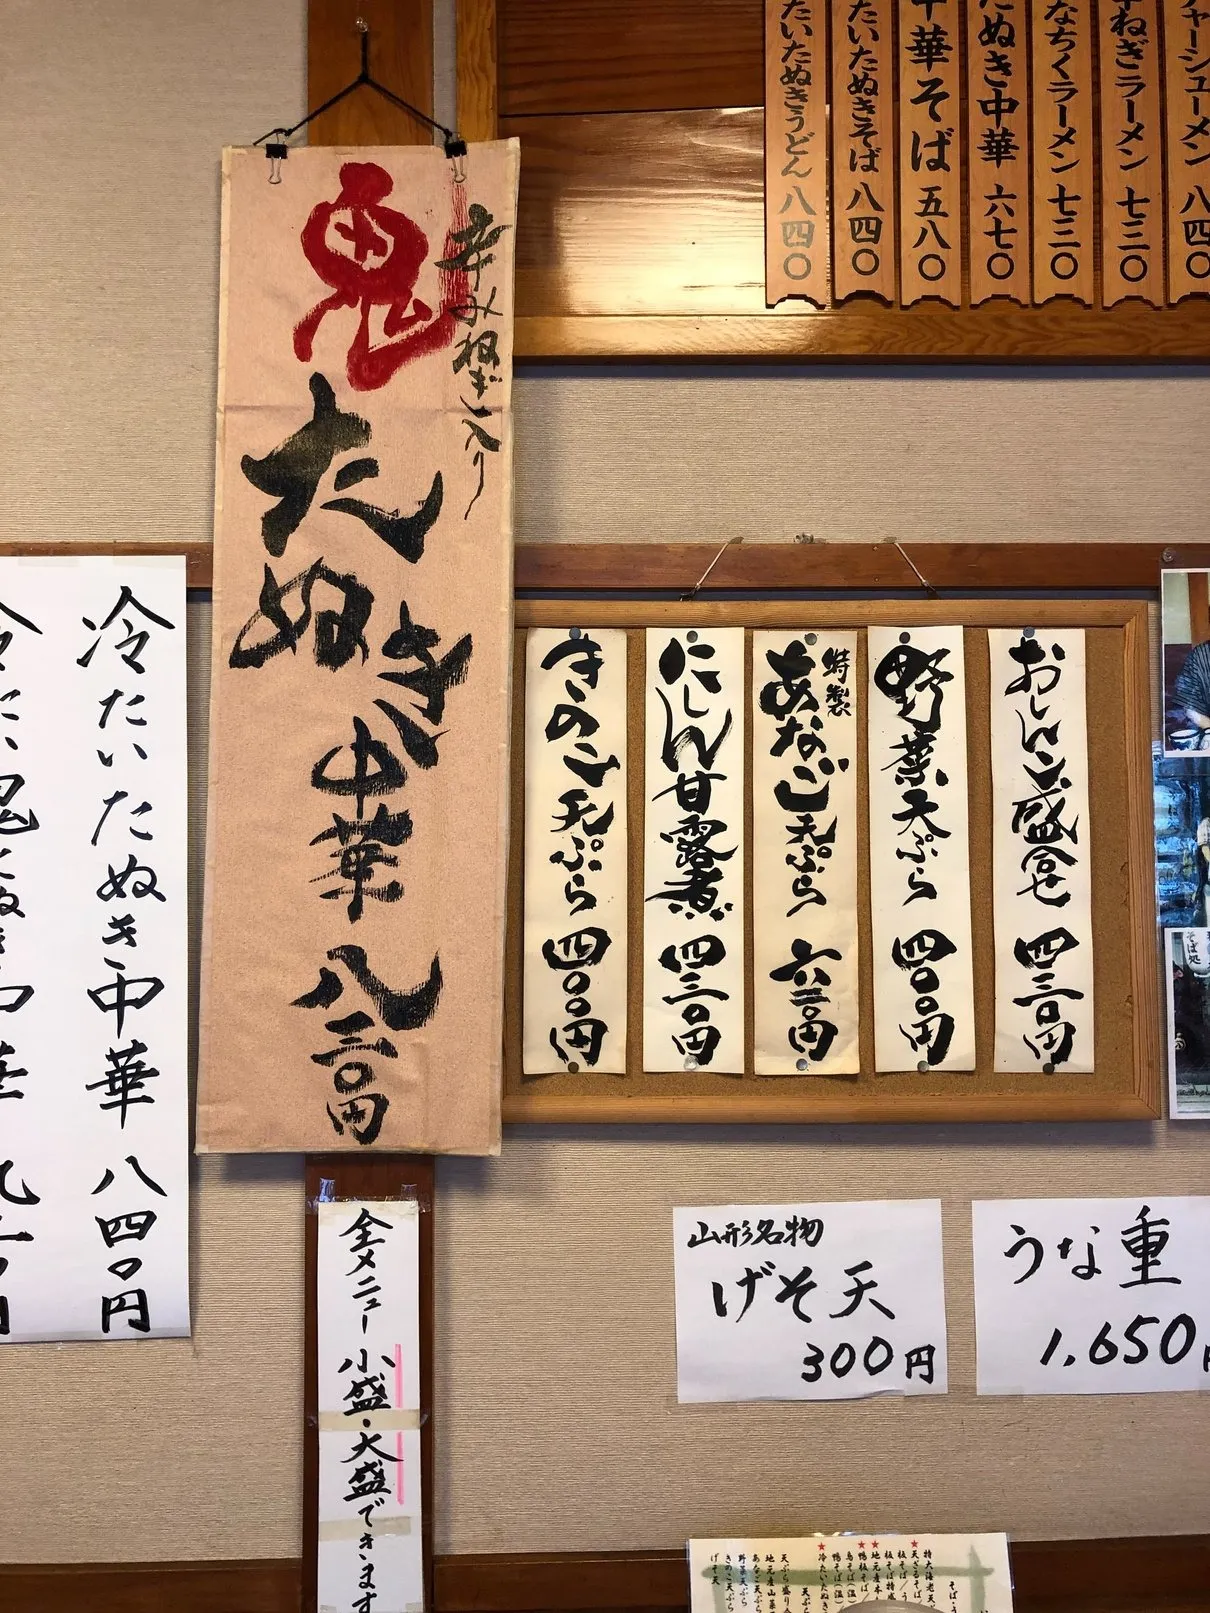 チャーシューメン 八四〇
ねぎラーメン 七三〇
なちくラーメン 七三〇
たぬき中華 六七〇
中華そば 五八〇
たいたぬきそば 八四〇
たいたぬきうどん 八四〇
辛み ねぎ入り
鬼
たぬき
中華
八三〇円
おしんこ盛合せ 四三〇円
野菜天ぷら 四〇〇円
特製
あなご天ぷら 六三〇円
にしん甘露煮 四三〇円
きのこ天ぷら 四〇〇円
冷たいたぬき中華 八四〇円
全メニュー 小盛・大盛できます
山形名物
げそ天
300円
うな重
1,650